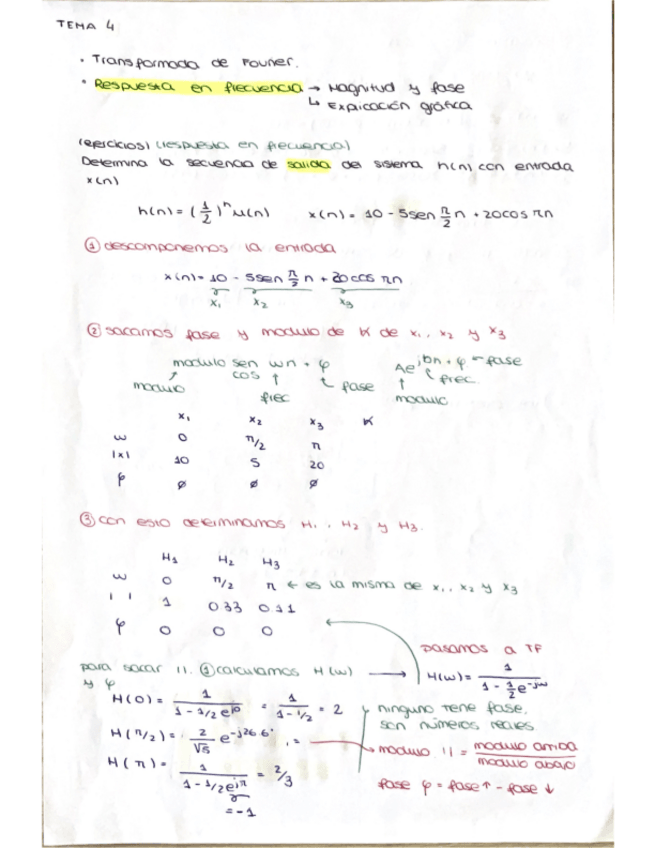 TEMA 4
· Transformada de Fourier.
· Respuesta en frecuencia → Magnitud y fase
↳ Explicación gráfica
(ejercicios) (respuesta en frecuencia)
Determina la secuencia de salida del sistema h(n) con entrada
x(n)
h(n) = (1/2)^n u(n)   x(n) = 10 - 5sen π/2 n + 20cos πn
① descomponemos la entrada
x(n) = 10 - 5sen π/2 n + 20cos πn
x₁ x₂ x₃
② sacamos fase y modulo de x₁, x₂ y x₃
modulo sen wn + φ
cos
modulo ↑ frec fase
Ae^jbn + φ ← fase
frec.
modulo
x₁ x₂ x₃
w 0 π/2 π
|x| 10 5 20
φ ø ø ø
③ con esto determinamos H₁, H₂ y H₃.
H₁ H₂ H₃
w 0 π/2 π ← es la misma de x₁, x₂ y x₃
| | 1 0'33 0'11
φ 0 0 0
pasamos a TF
para sacar | |. ① calculamos H(w) → H(w) = 1 / (1 - 1/2 e^-jw)
y φ
H(0) = 1 / (1 - 1/2 e^j0) = 1 / (1 - 1/2) = 2
ninguno tiene fase,
son números reales
H(π/2) = 2/√5 e^-j26'6°
modulo | | = modulo arriba / modulo abajo
H(π) = 1 / (1 - 1/2 e^jπ) = 2/3
= -1
fase φ = fase ↑ - fase ↓